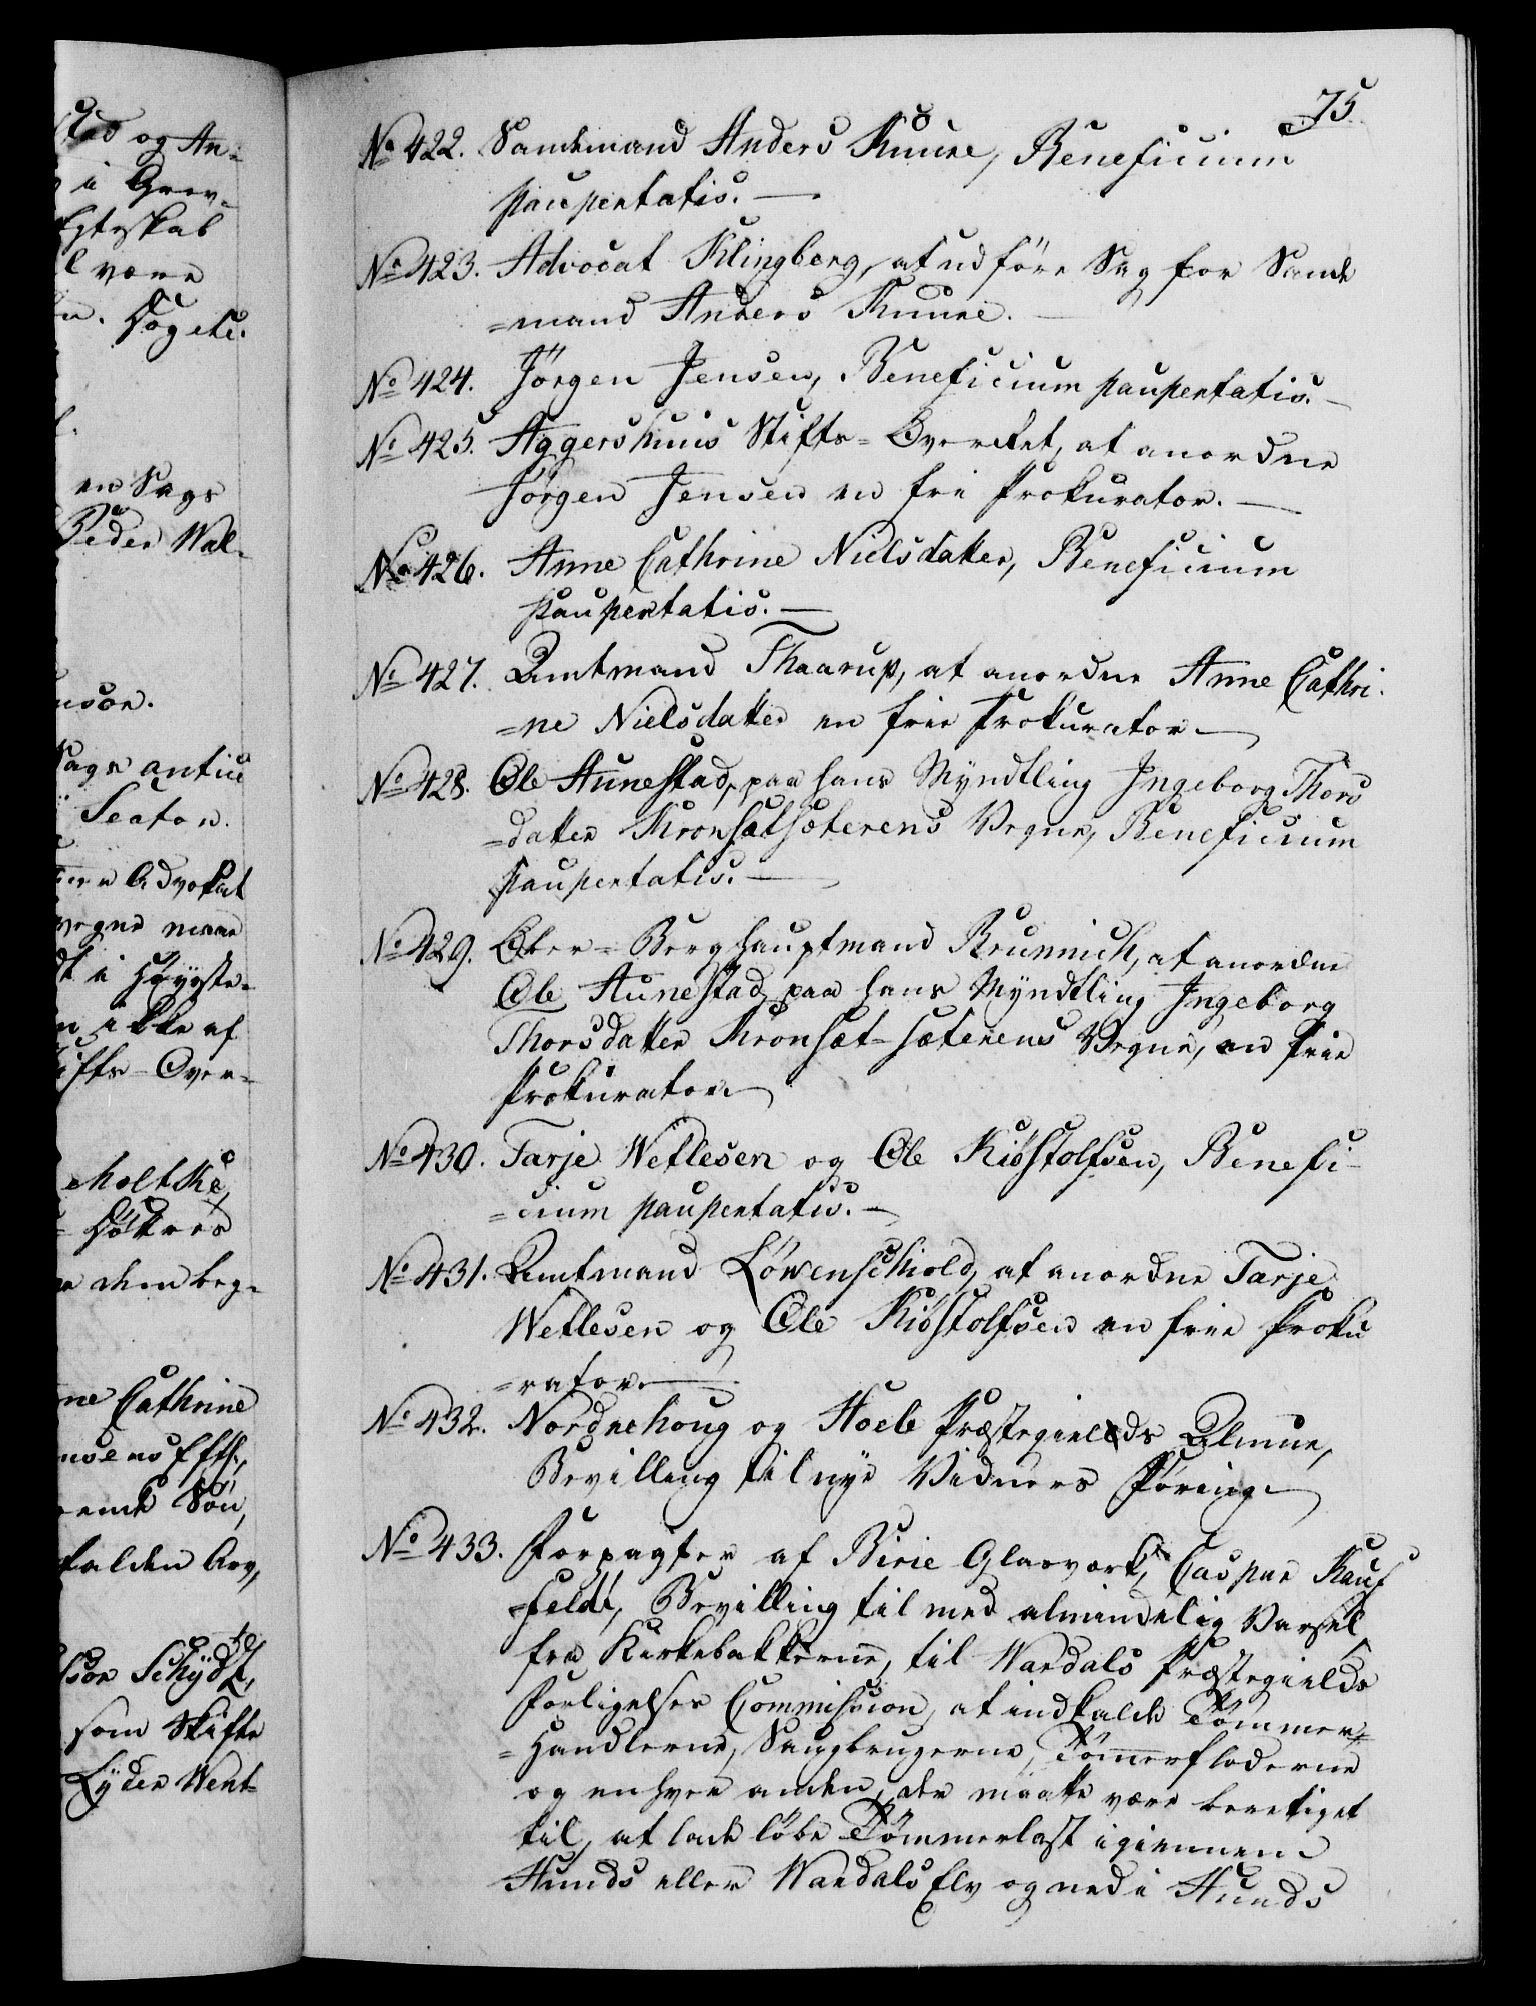 75.
No 422. Sandemand Anders Knune, Beneficium
paupertatis. —
No 423. Advocat Klingberg, at udföre Sag for Sande
=mand Anders Knune. —
No 424. Jörgen Jensen, Beneficium paupertatis. —
No 425. Aggershuus Stifts=Övrighet, at anordne
Jörgen Jensen en fri Prokurator. —
No 426. Anne Cathrine Nielsdatter, Beneficium
paupertatis. —
No 427. Amtmand Thaarup, at anordne Anne Cathri-
=ne Nielsdatter en frie Prokurator
No 428. Ole Aunestad, paa hans Myndtling Ingeborg Thors
=datter Kronsætsæterens Vegne, Beneficium
paupertatis. —
No 429. Ober=Berghauptmand Brunnich, at anordne
Ole Aunestad paa hans Myndtling Ingeborg
Thorsdatter Kronsæt-sæterens Vegne, en frie
Prokurator
No 430. Tarje Wetlesen og Ole Kiöstolfsen, Benefi-
=cium paupertatis. —
No 431. Amtmand Löwenschiold, at anordne Tarje
Wetlesen og Ole Kiöstolfsen en frie Proku
=rator
No 432. Nordrehoug og Hoele Præstegields Almue,
Bevilling til nye Vidners Föring
No 433. Forpagter af Birie Glasværk, Caspar Kauf
=feldt, Bevilling til med almindelig Varsel
fra Kirkebakkerne, til Wardals Præstegields
Forligelses Commission, at indkalde Tömmer
=Handlerne, Saugbrugerne, Tömmerfloderne
og enhver anden, der maatte være berettiget
til, at lade löbe Tömmerlast igiennem
Hunds eller Wardals Elv og ned i Hunds
stad og An=
i Grev=
Egteskab
være
Dog etc.
en Sags
Peder Wal=
Sags antice
Seaton.
Advokat
vegne maae
i Höyste=
ikke af
Stifts-Over=
Moltke,
dem beg=
Cathrine
Söu,
falden Arv,
Schydtz,
som Skifte
Lyder Went=